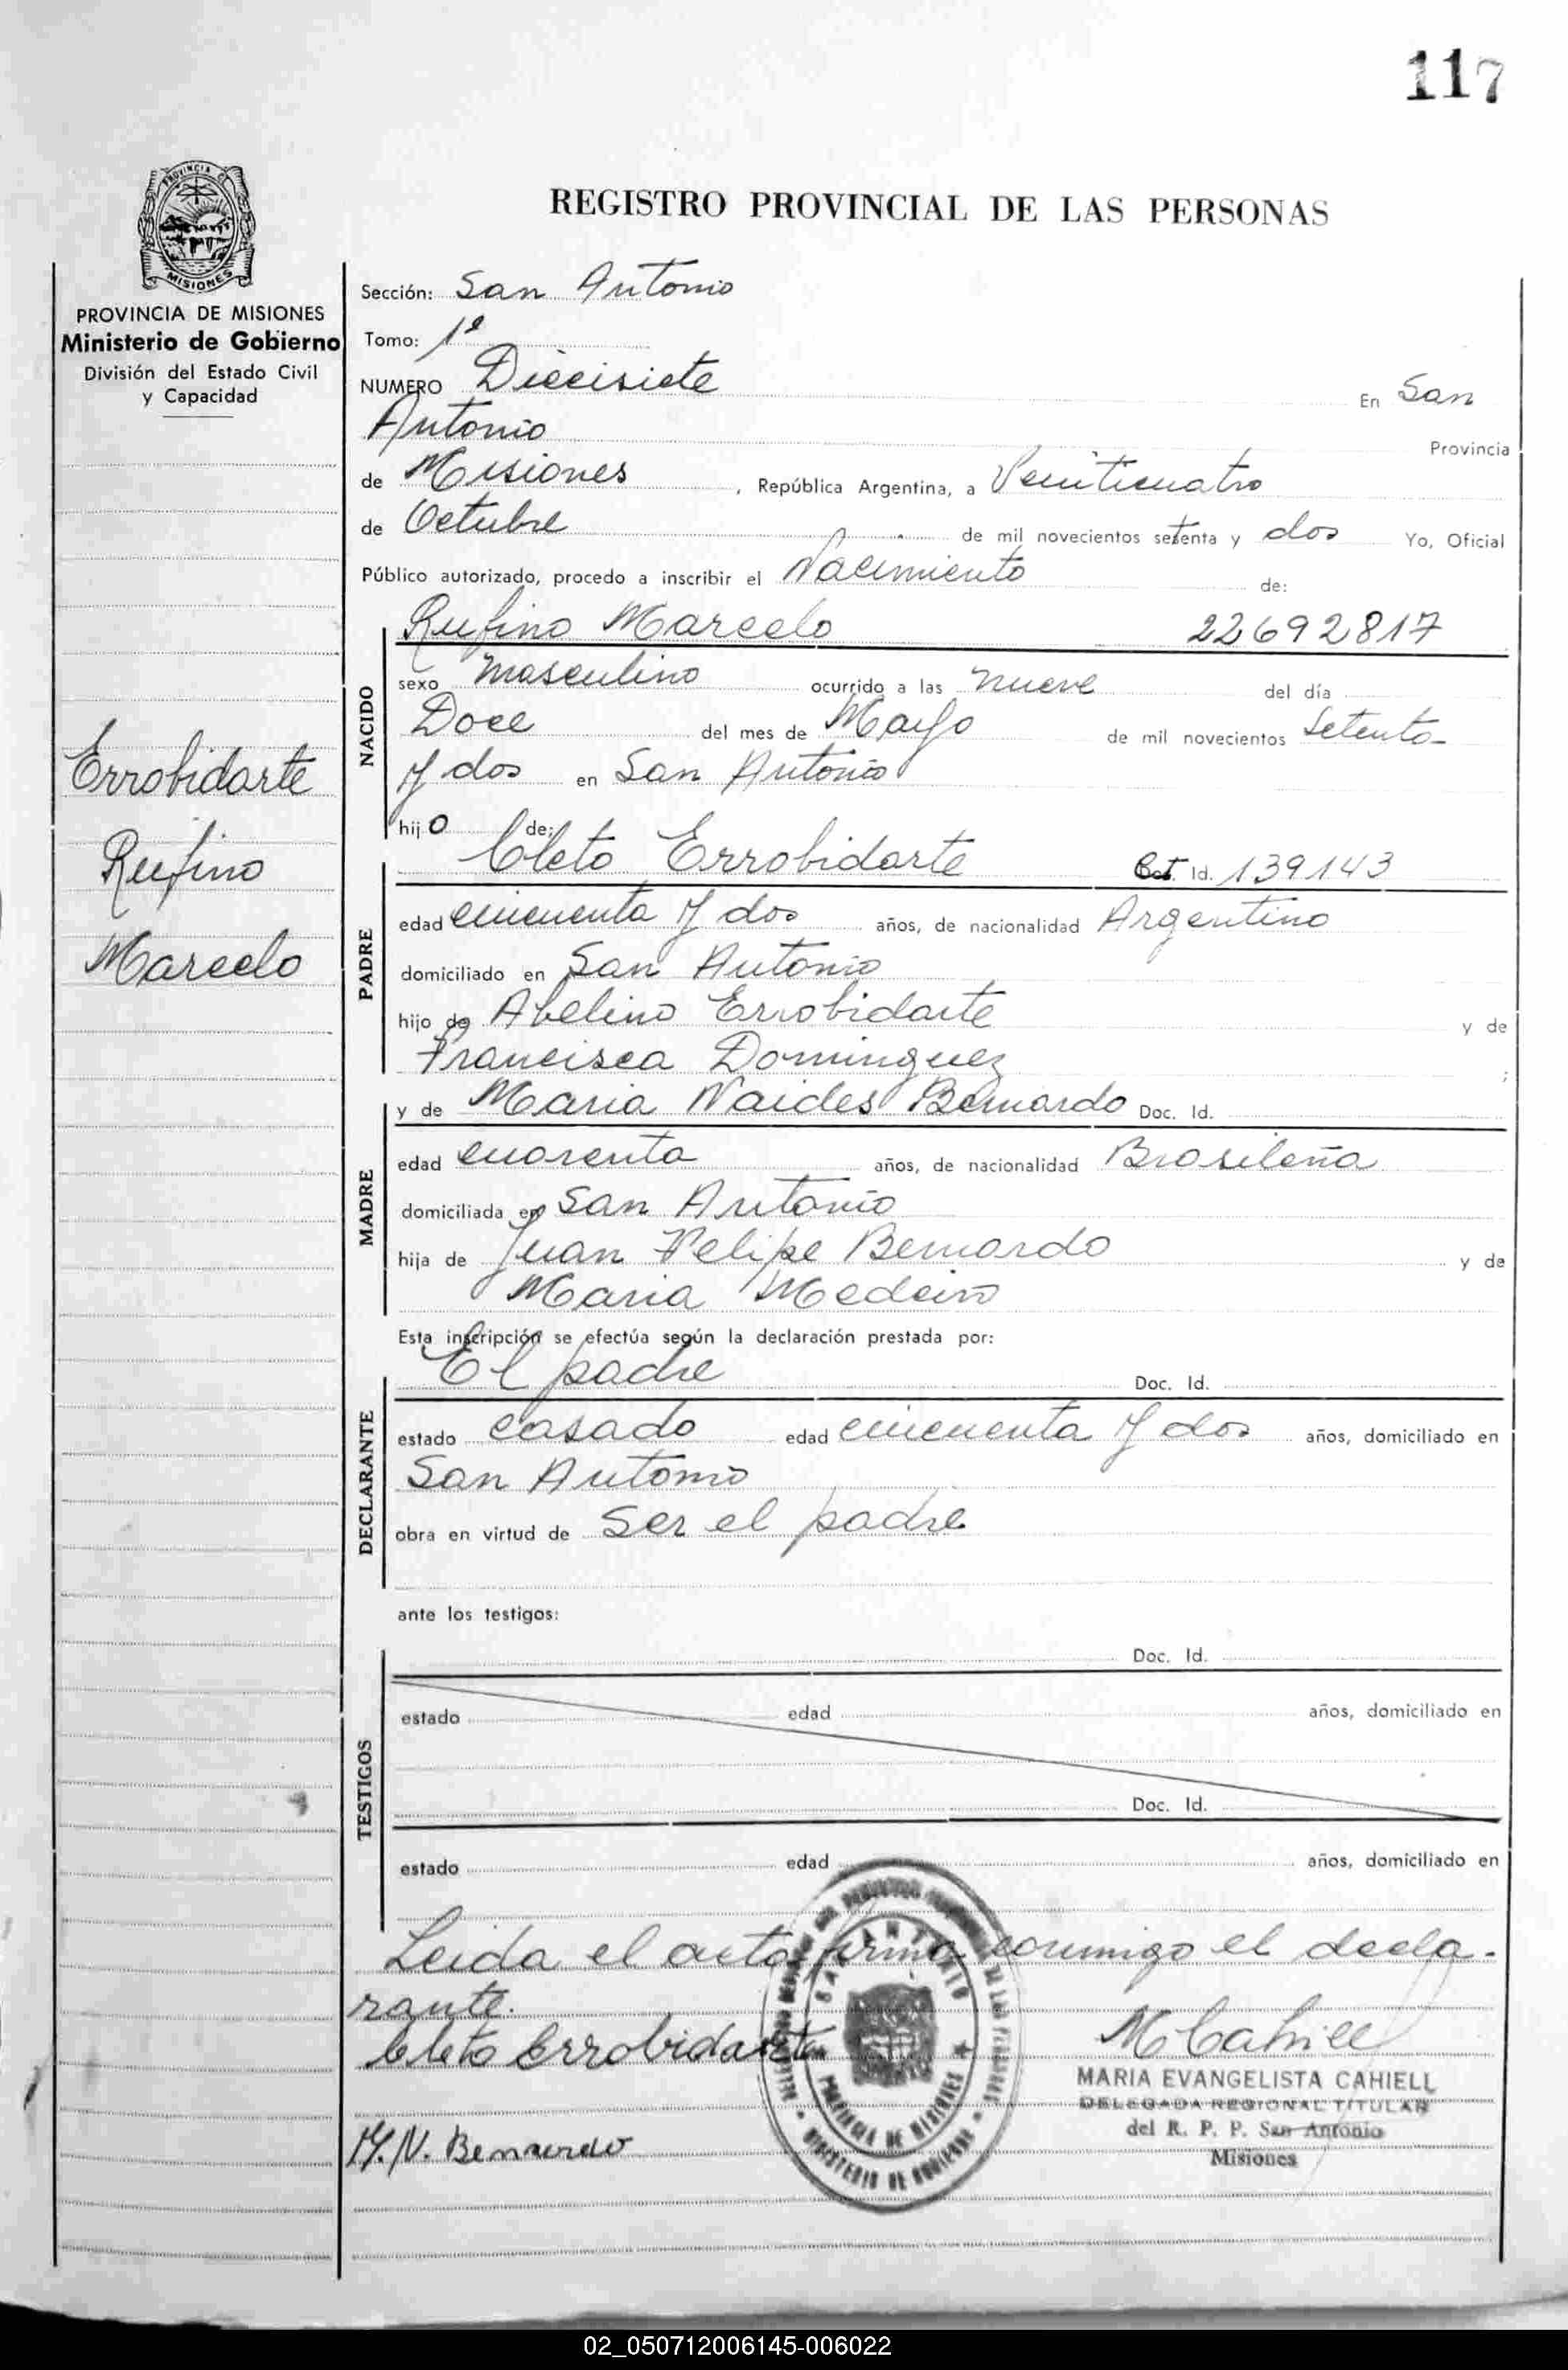 117
PROVINCIA DE MISIONES
Ministerio de Gobierno
División del Estado Civil
y Capacidad
Errobidarte
Rufino
Marcelo
REGISTRO PROVINCIAL DE LAS PERSONAS
Sección: San Antonio
Tomo: 1º
NUMERO Diecisiete En San
Antonio Provincia
de Misiones, República Argentina, a Veinticuatro
de Octubre de mil novecientos setenta y dos Yo, Oficial
Público autorizado, procedo a inscribir el Nacimiento de:
NACIDO
Rufino Marcelo 22692817
sexo masculino ocurrido a las nueve del día
Doce del mes de Mayo de mil novecientos setenta
y dos en San Antonio
hijo de:
PADRE
Cleto Errobidarte Id. 139143
edad cincuenta y dos años, de nacionalidad Argentino
domiciliado en San Antonio
hijo de Abelino Errobidarte y de
Francisca Dominguez ;
MADRE
y de Maria Naides Bernardo Doc. Id.
edad cuarenta años, de nacionalidad Brasileña
domiciliada en San Antonio
hija de Juan Felipe Bernardo y de
Maria Medeiro
Esta inscripción se efectúa según la declaración prestada por:
DECLARANTE
El padre Doc. Id.
estado casado edad cincuenta y dos años, domiciliado en
San Antonio
obra en virtud de Ser el padre
ante los testigos:
TESTIGOS
Doc. Id.
estado edad años, domiciliado en
Doc. Id.
estado edad años, domiciliado en
Leida el acta firma conmigo el decla-
rante.
Cleto Errobidarte
M Cahiell
MARIA EVANGELISTA CAHIELL
DELEGADA REGIONAL TITULAR
del R. P. P. San Antonio
Misiones
M. N. Bernardo
SAN ANTONIO
PROVINCIA DE MISIONES
MINISTERIO DE GOBIERNO
02_050712006145-006022